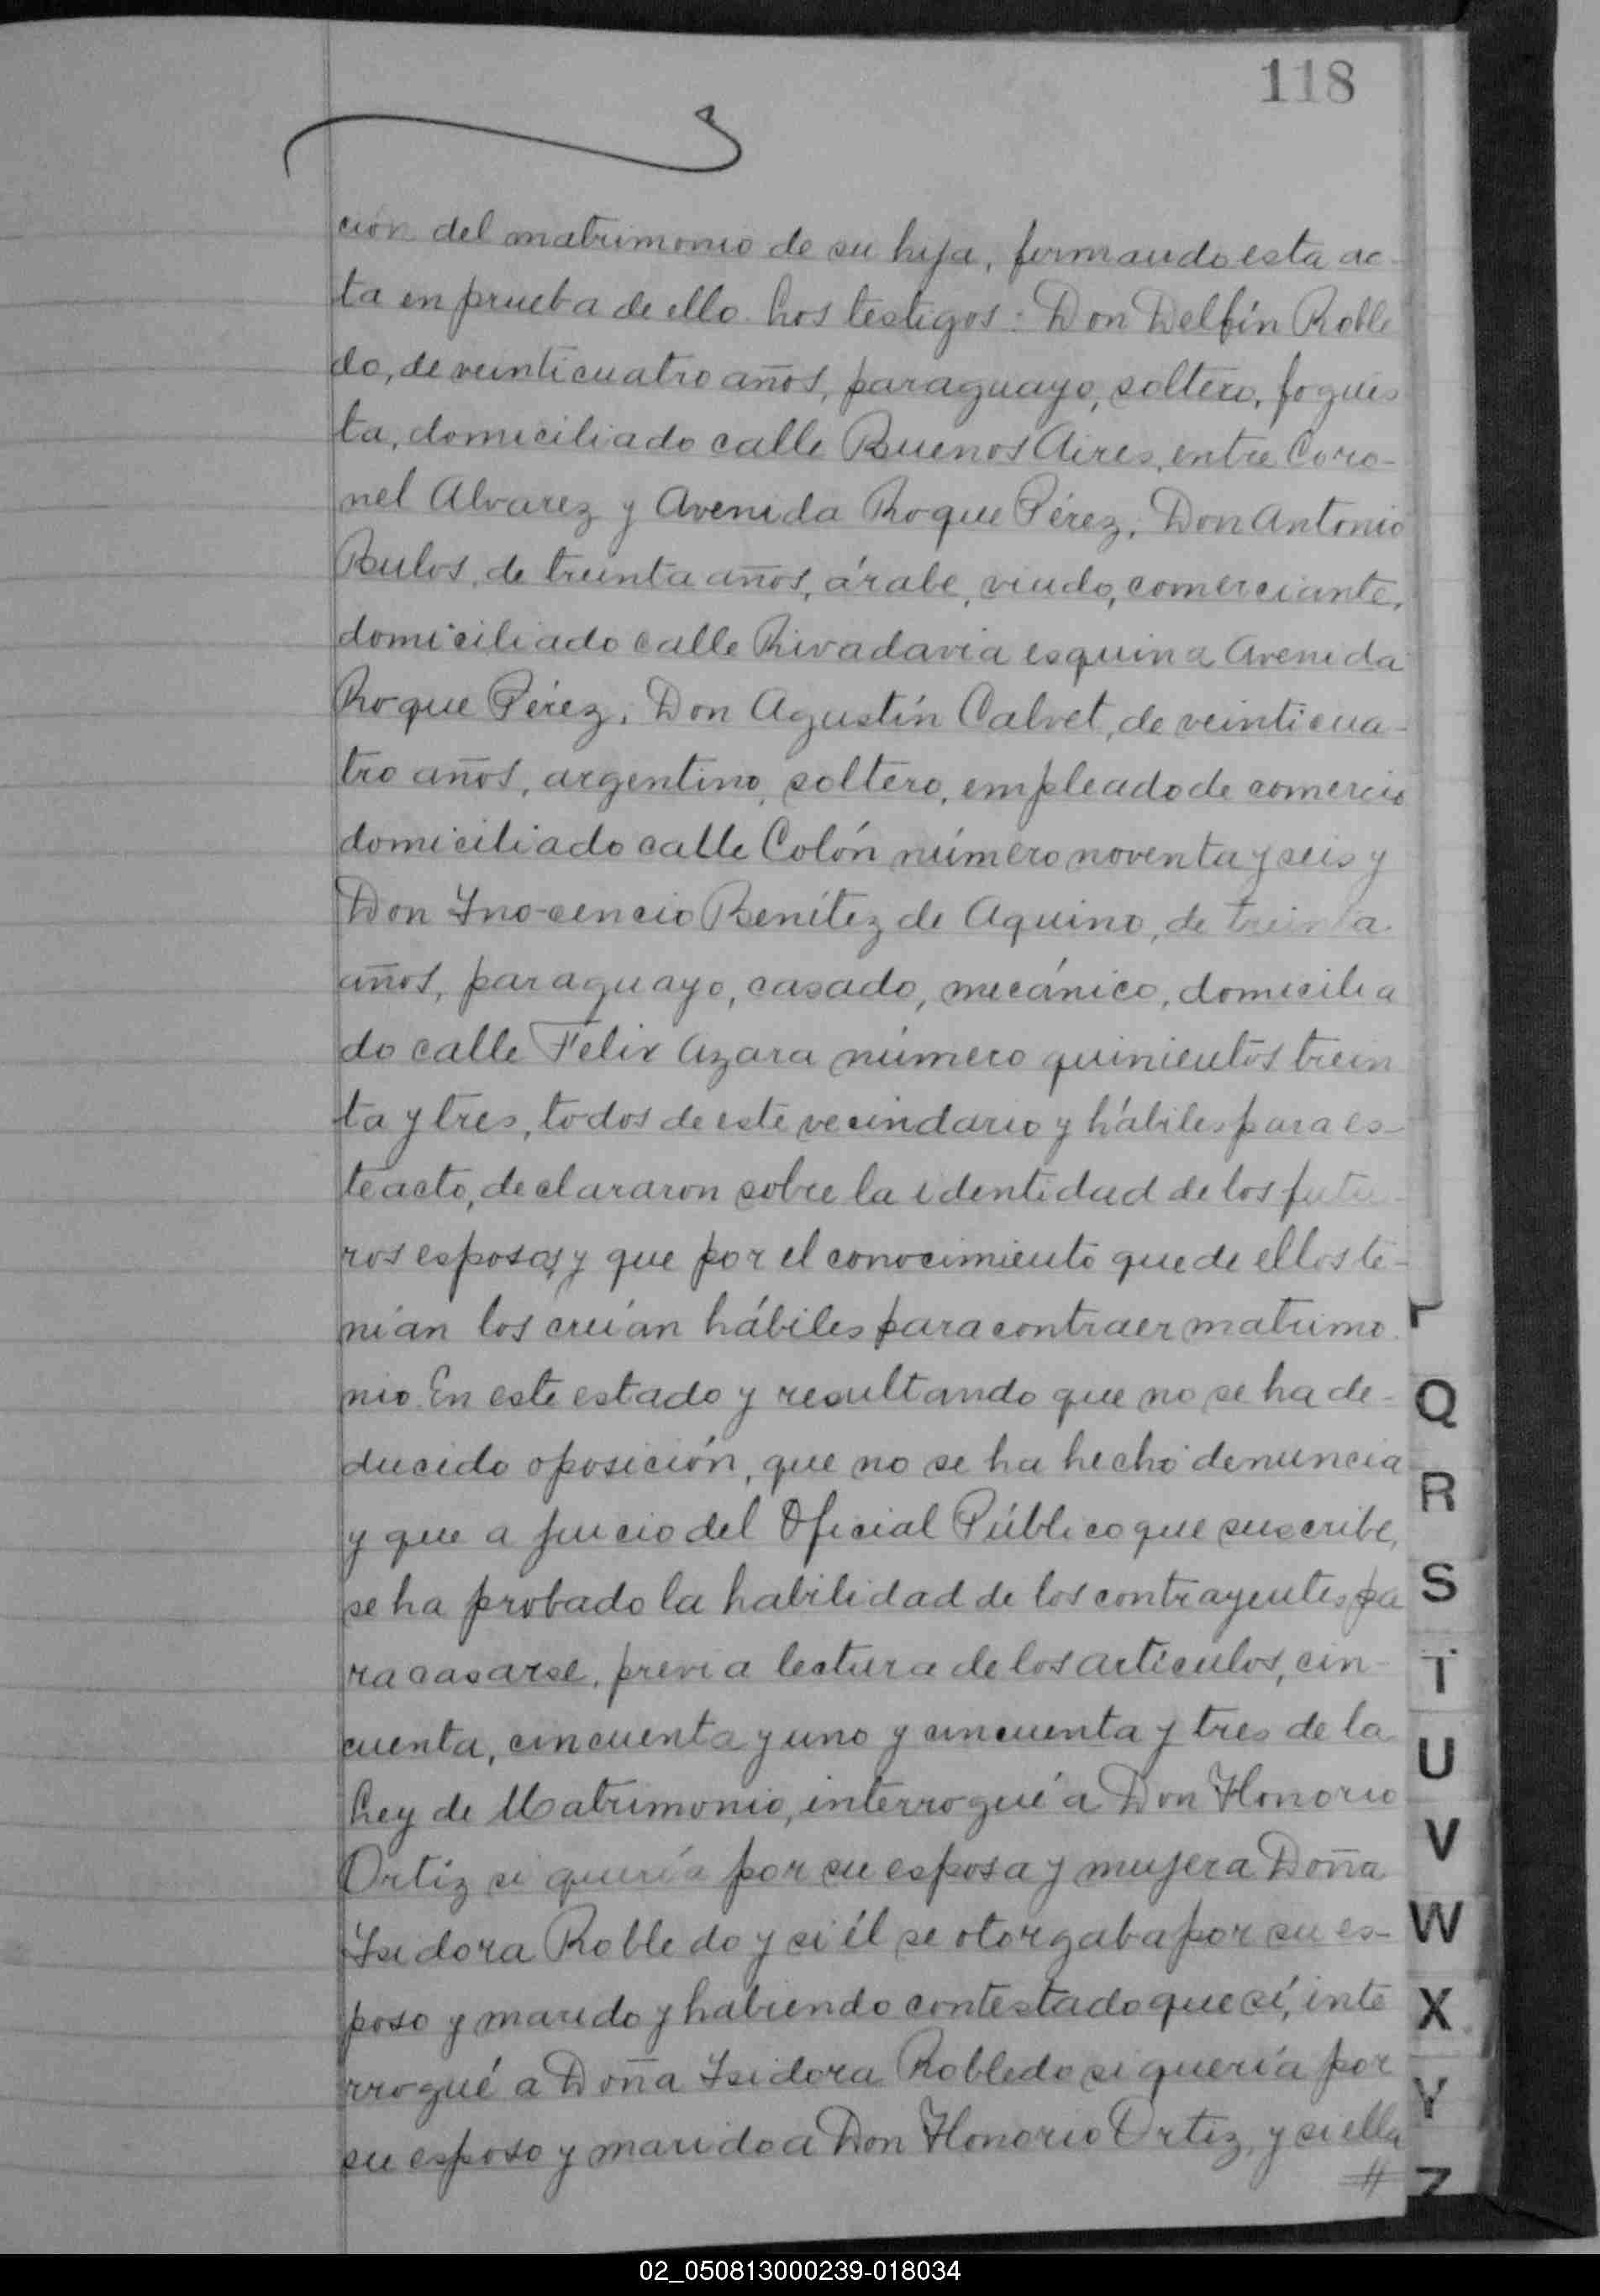 118
ción del matrimonio de su hija, firmando esta ac-
ta en prueba de ello. Los testigos: Don Delfín Roble
do, de veinticuatro años, paraguayo, soltero, foguis
ta, domiciliado calle Buenos Aires, entre Coro-
nel Alvarez y Avenida Roque Pérez; Don Antonio
Bulos, de treinta años, árabe, viudo, comerciante,
domiciliado calle Rivadavia esquina Avenida
Roque Pérez; Don Agustín Calvet, de veinticua-
tro años, argentino, soltero, empleado de comercio
domiciliado calle Colón número noventa y seis y
Don Ino-cencio Benítez de Aquino, de treinta
años, paraguayo, casado, mecánico, domicilia
do calle Felix Azara número quinientos trein
ta y tres, todos de este vecindario y hábiles para es-
te acto, declararon sobre la identidad de los futu-
ros esposos y que por el conocimiento que de ellos te-
nían los creían hábiles para contraer matrimo-
nio. En este estado y resultando que no se ha de-
ducido oposición, que no se ha hecho denuncia
y que a juicio del Oficial Público que suscribe,
se ha probado la habilidad de los contrayentes pa
ra casarse, previa lectura de los artículos, cin-
cuenta, cincuenta y uno y cincuenta y tres de la
Ley de Matrimonio, interrogué a Don Honorio
Ortiz si quería por su esposa y mujer a Doña
Isidora Robledo y si él se otorgaba por su es-
poso y marido y habiendo contestado que sí, inte
rrogué a Doña Isidora Robledo si quería por
su esposo y marido a Don Honorio Ortiz, y si ella
//
P
Q
R
S
T
U
V
W
X
Y
Z
02_050813000239-018034